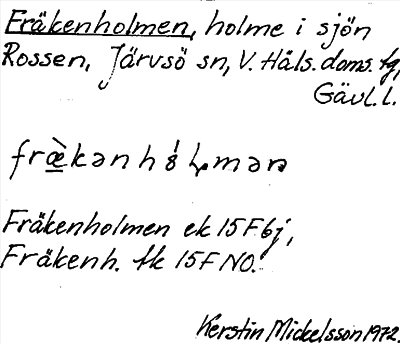 Fräkenholmen, holme i sjön
Rossen, Järvsö sn, V. Häls. doms. fg,
Gävl. l.
fræ̀kənh
Fräkenholmen ek 15F6j,
Fräkenh. tk 15F NO.
Kerstin Mickelsson 1972.